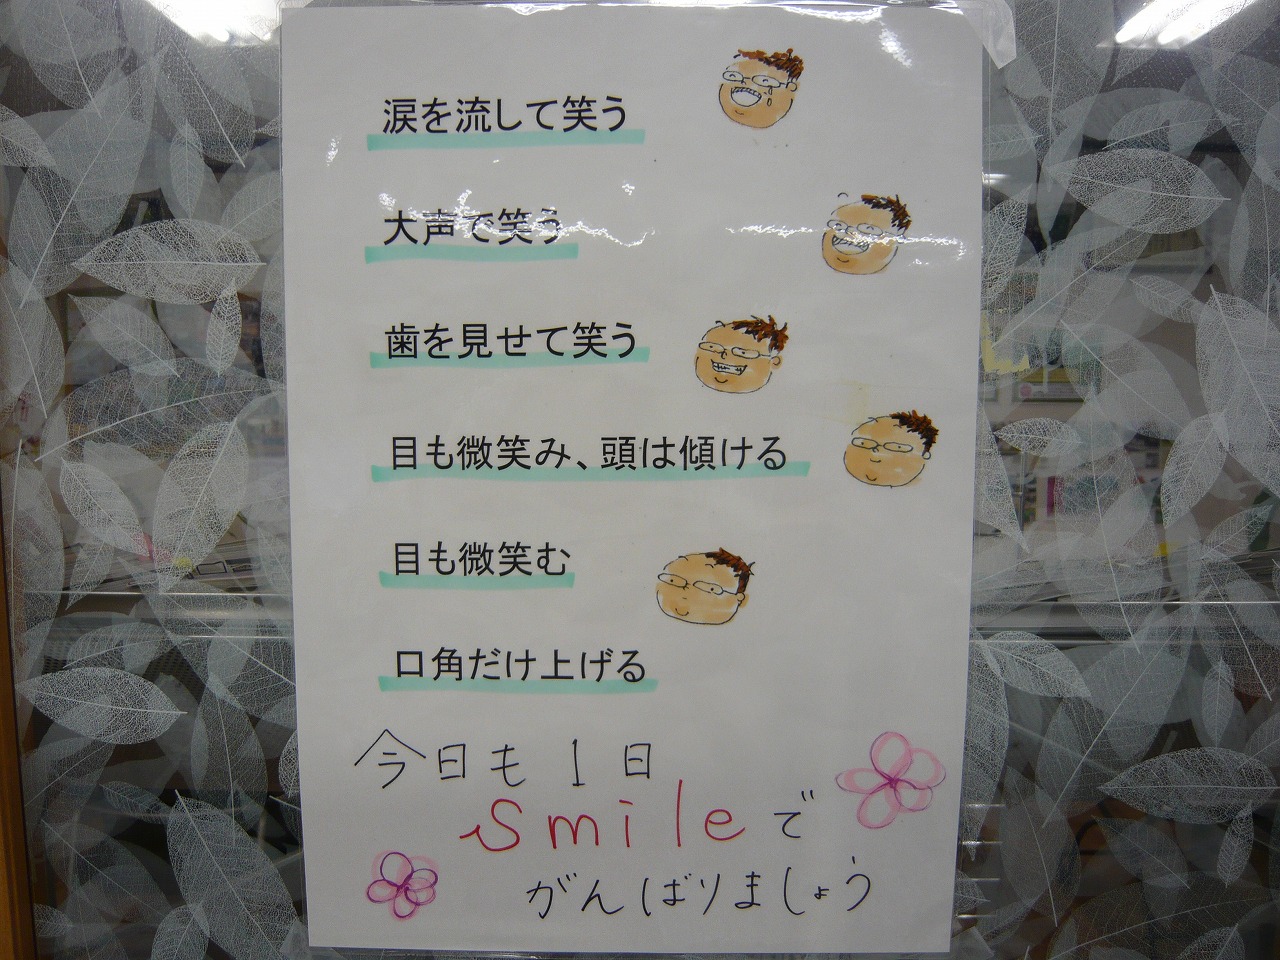 涙を流して笑う
大声で笑う
歯を見せて笑う
目も微笑み、頭は傾ける
目も微笑む
口角だけ上げる
今日も1日
smileで
がんばりましょう